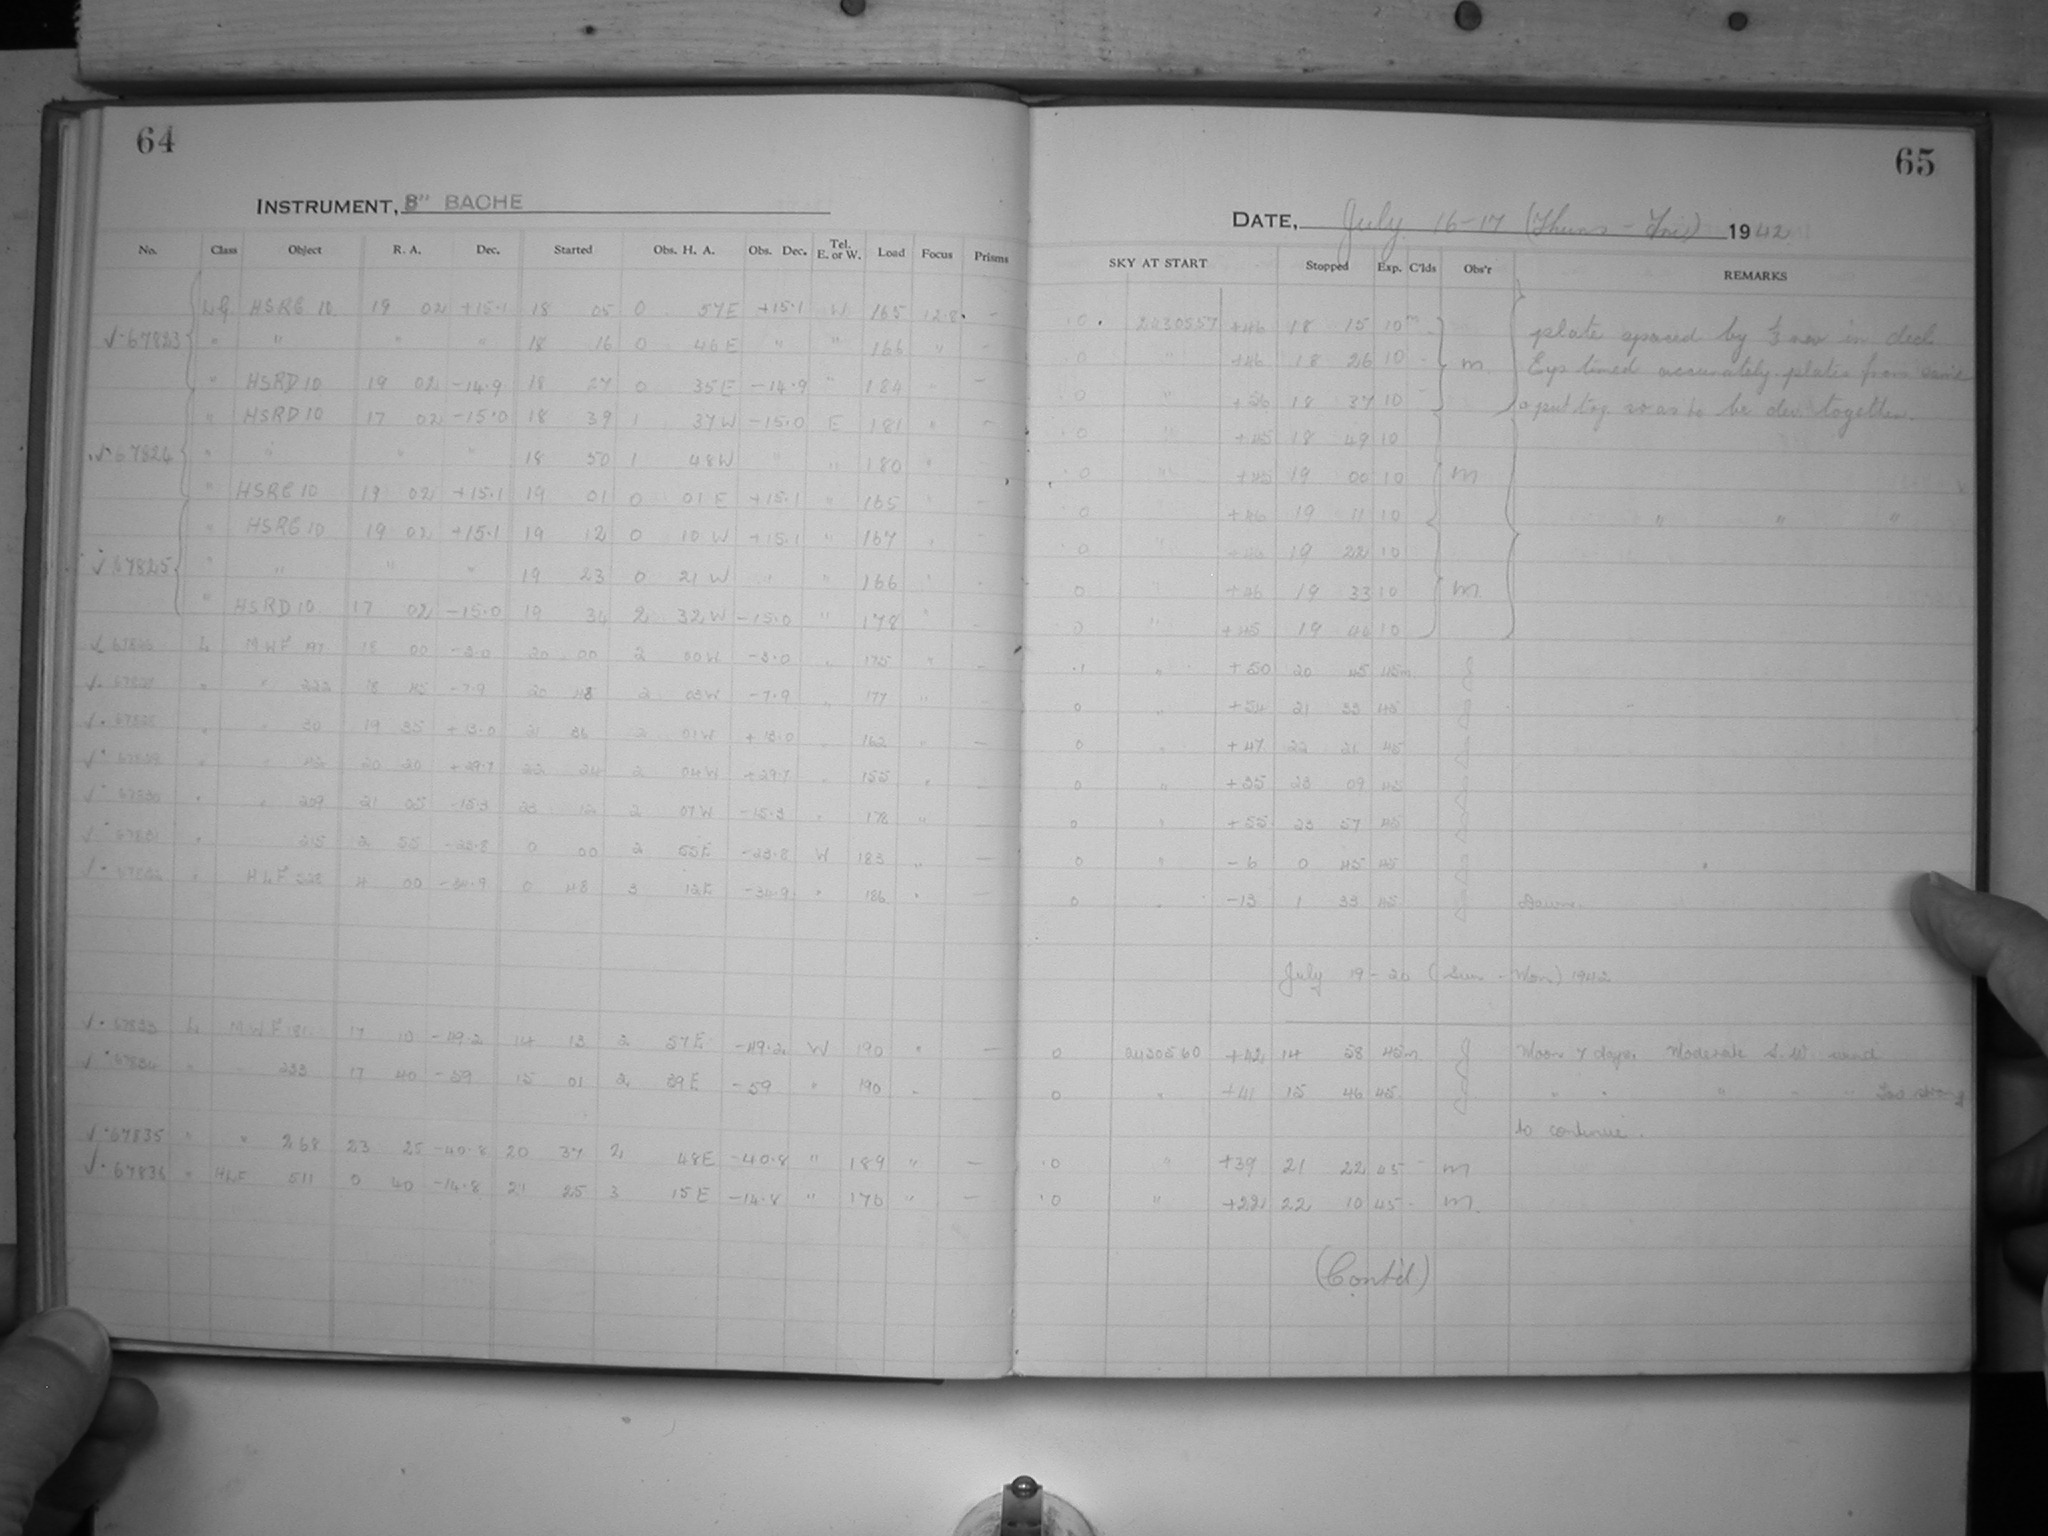 64
INSTRUMENT, 8" BACHE
No. Class Object R. A. Dec. Started Obs. H. A. Obs. Dec. Tel. E. or W. Load Focus Prisms
HSRC 10 19 02 +15.1 18 05 0 57E +15.1 W 165 12.8 -
67823 " " " " 18 16 0 46E " " 166 " -
" HSRD 10 19 02 -14.9 18 27 0 35E -14.9 " 184 " -
" HSRD 10 17 02 -15.0 18 39 1 37W -15.0 E 181 " -
67824 " " " " 18 50 1 48W " " 180 "
" HSRC 10 19 02 +15.1 19 01 0 01E +15.1 " 165 -
" HSRC 10 19 02 +15.1 19 12 0 10W +15.1 " 167 -
67825 " " " " 19 23 0 21W " " 166
" HSRD 10 17 02 -15.0 19 34 2 32W -15.0 " 178 -
L MWF 18 00 20 00 2 00W 175 " -
" " 222 18 45 -7.9 20 48 2 03W -7.9 " 177 "
" 30 19 35 +13.0 21 36 2 01W +13.0 162 " -
20 20 +29.7 22 24 2 04W +29.7 155 -
209 21 05 -15.3 23 12 2 07W -15.3 178 "
67831 215 2 55 -23.8 0 00 2 55E -23.8 W 183 " -
HLF 4 00 -34.9 0 48 3 12E -34.9 " 186 -
67833 L MWF 17 10 -49.2 14 13 2 57E -49.2 W 190 " -
67834 233 17 40 -59 15 01 2 39E -59 " 190 -
67835 " " 268 23 25 -40.8 20 37 2 48E -40.8 " 189 " -
67836 " HLF 511 0 40 -14.8 21 25 3 15E -14.8 " 176 " -
65
DATE, July 16-17 (Thurs - Fri) 1942
SKY AT START Stopped Exp. C'lds Obs'r REMARKS
0 2430557 +46 18 15 10m plate spaced by in decl.
0 " +46 18 26 10 m Exp timed accurately. plates from same
0 " 18 37 10 so as to be dev. together.
0 +45 18 49 10
0 " +45 19 00 10 m
0 +46 19 11 10 " " "
0 " 19 22 10
0 " +46 19 33 10 m
0 " +45 19 44 10
" +50 20 45 45m
0 " +54 21 33 45
0 " +47 22 21 45
0 " +35 23 09 45
0 " +55 23 57 45
0 " -6 0 45 45
0 -13 1 33 45 Dawn.
July 19-20 (Sun - Mon) 1942
0 2430560 +42 14 58 45m Moon 7 days. Moderate S.W. wind
0 " +41 15 46 45 " " " Too strong
to continue.
0 " +39 21 22 45 m
0 " +22 22 10 45 m
(Cont'd)